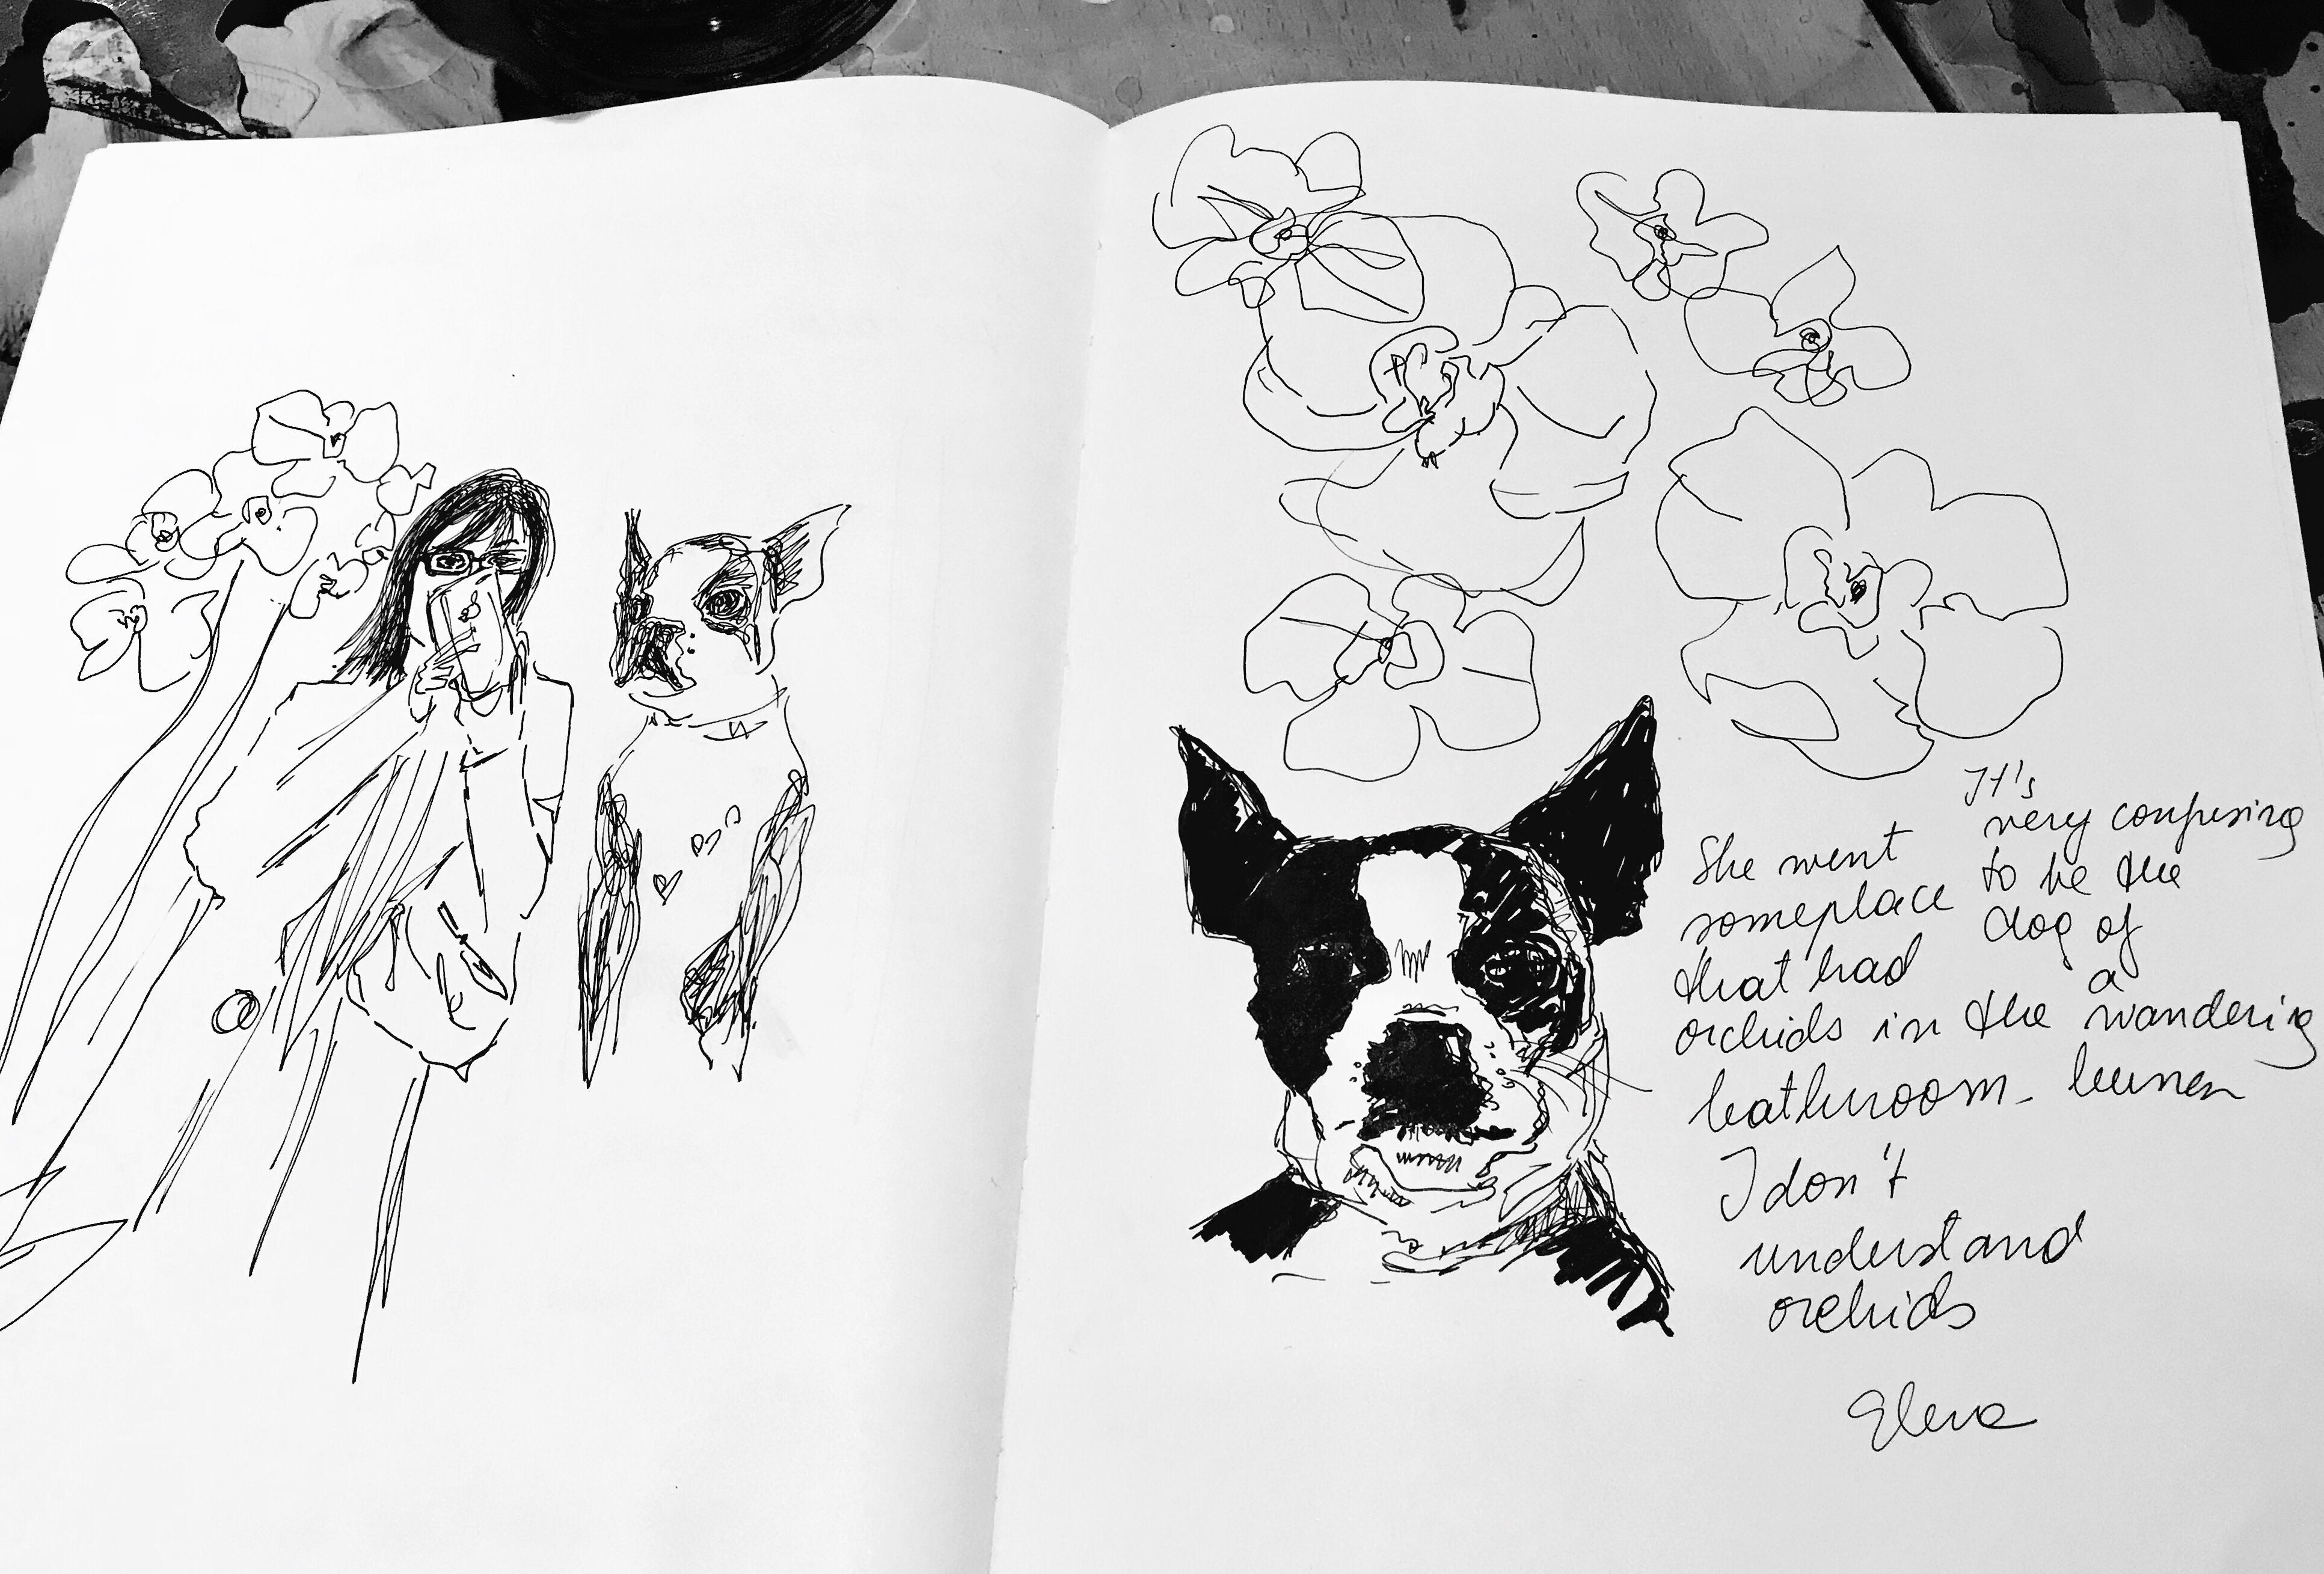 She went
someplace
that had
orchids in the
bathroom.
It's
very confusing
to be the
dog of
a
wandering
human
I don't
understand
orchids
Elena